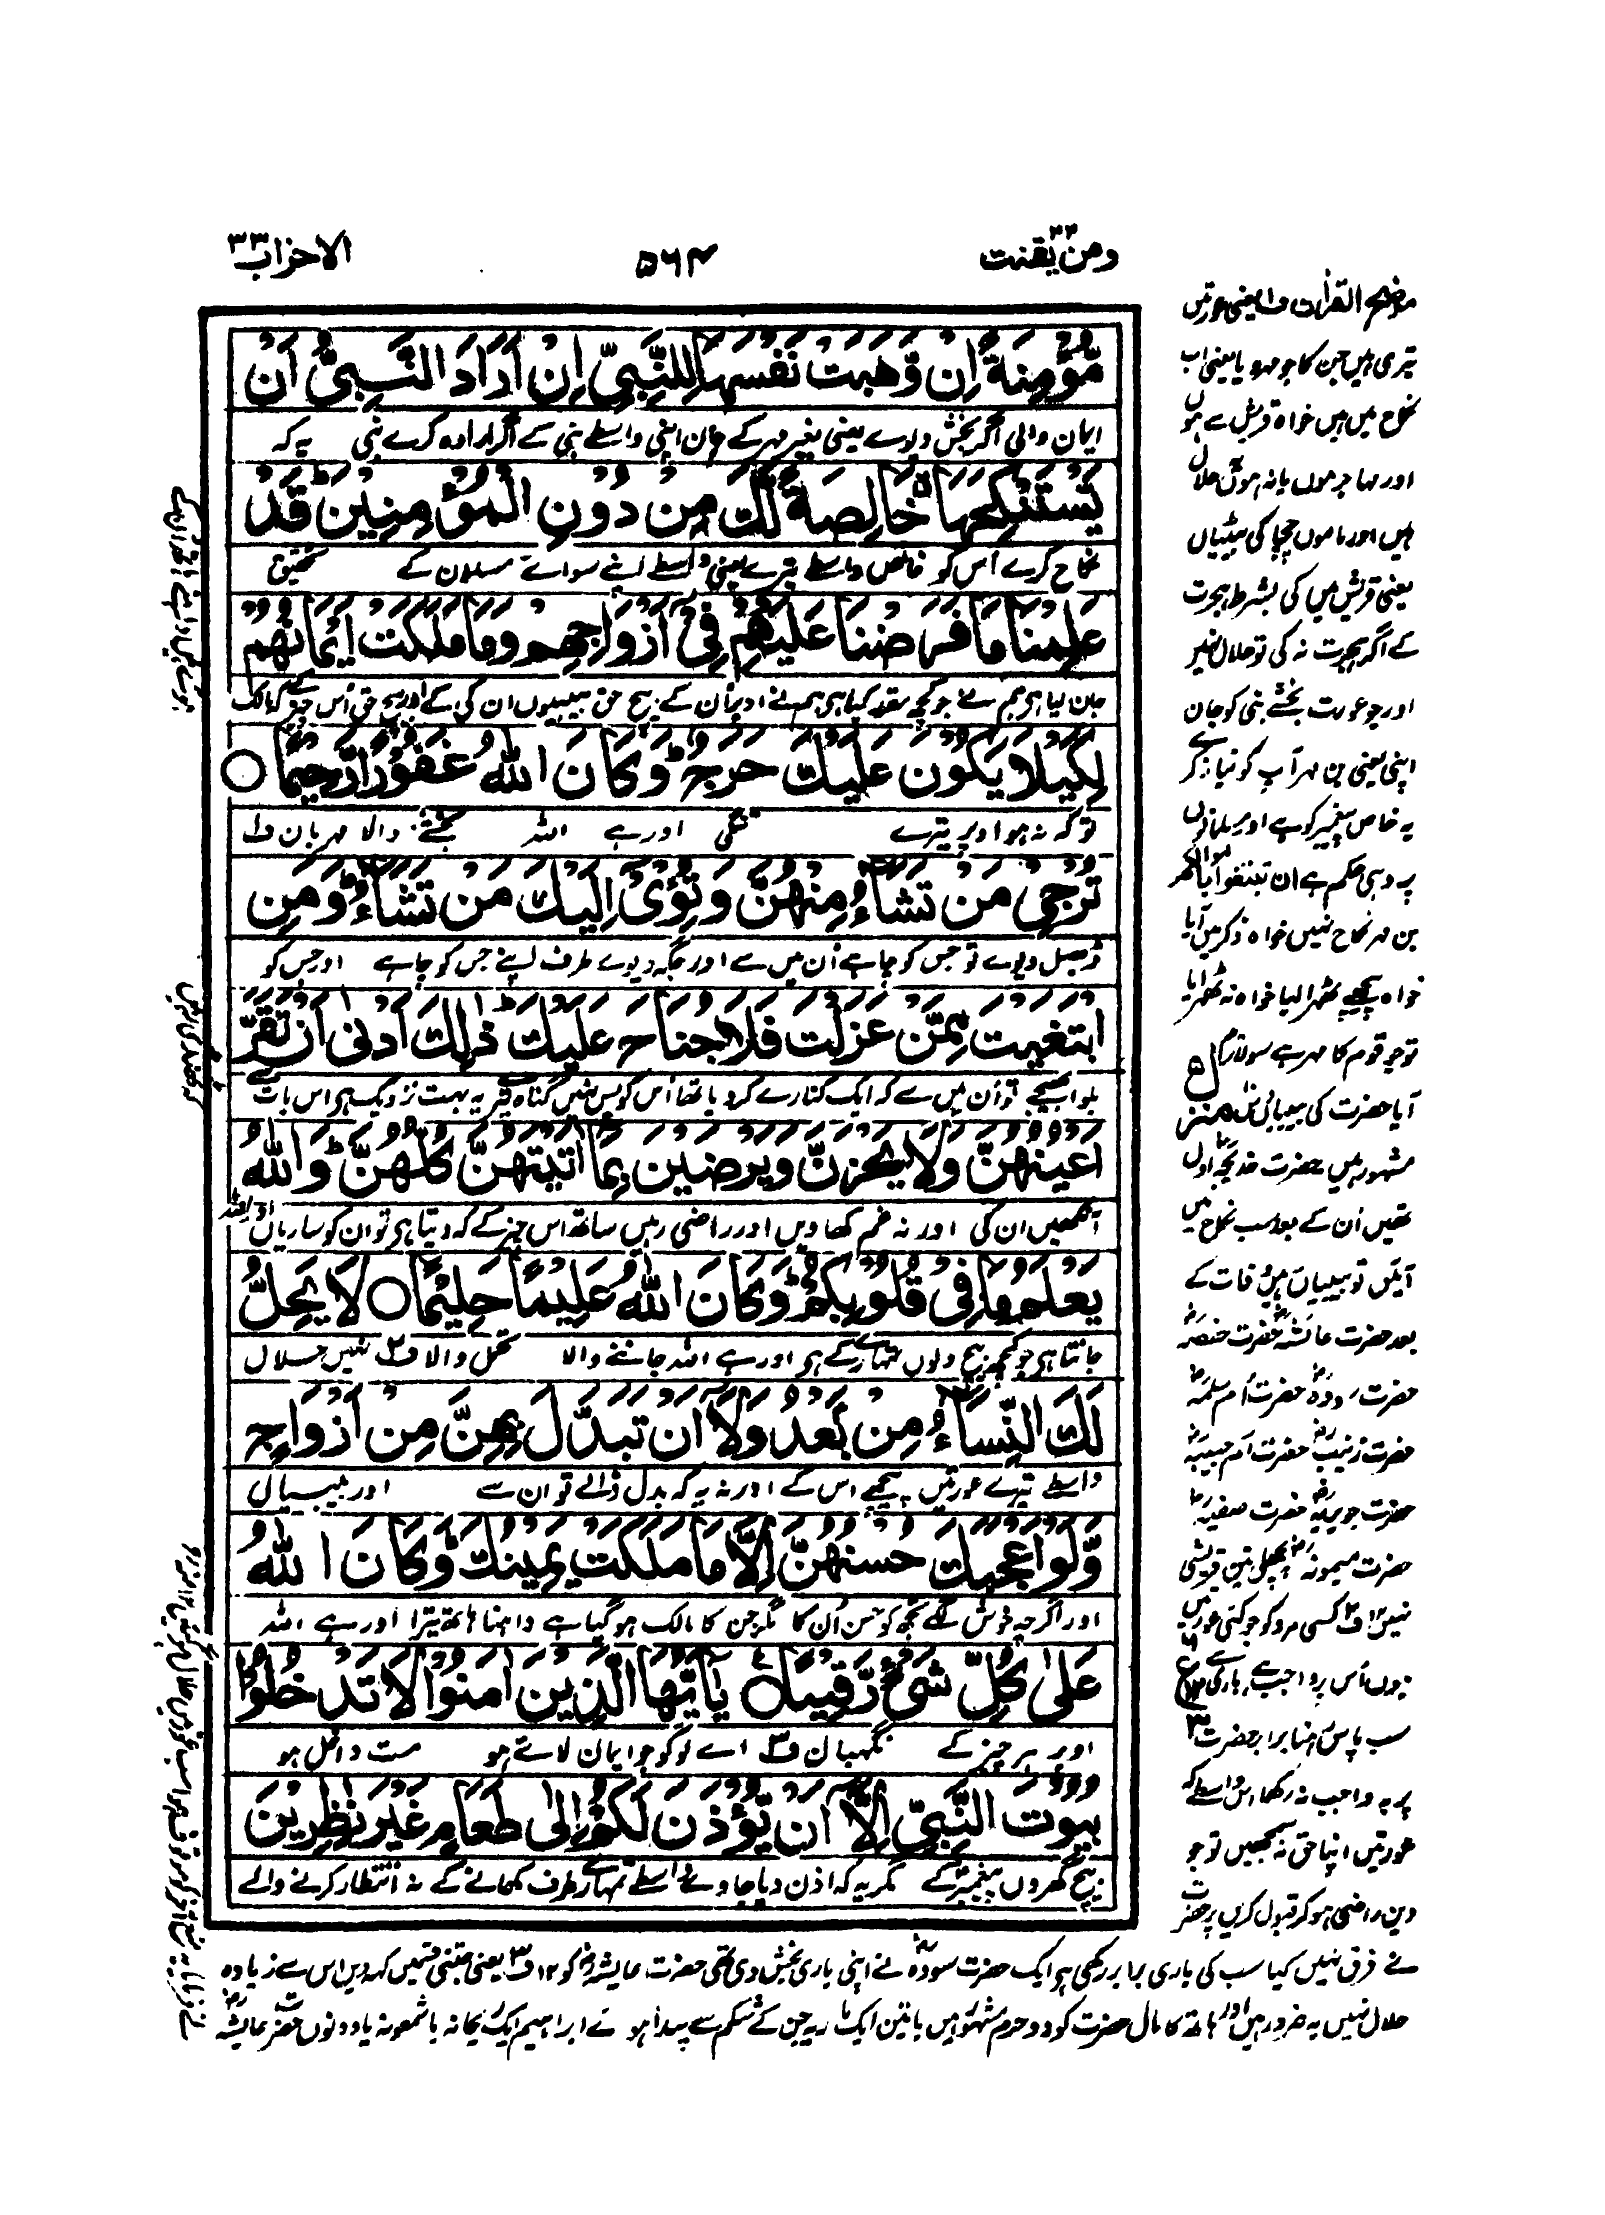 ومن یقنت ۲۲
۵۶۴
الاحزاب ۳۳
مُّؤْمِنَةً اِنْ وَّهَبَتْ نَفْسَهَا لِلنَّبِيِّ اِنْ اَرَادَ النَّبِيُّ اَنْ
ایمان والی اگر بخش دیوے یعنی بغیر مہر کے جان اپنی واسطے نبی کے اگر ارادہ کرے نبی یہ کہ
يَّسْتَنْكِحَهَا خَالِصَةً لَّكَ مِنْ دُوْنِ الْمُؤْمِنِيْنَ قَدْ
نکاح کرے اُس کو خالص واسطے تیرے یعنی واسطے اپنے سوائے مسلمان کے تحقیق
عَلِمْنَا مَا فَرَضْنَا عَلَيْهِمْ فِيْ اَزْوَاجِهِمْ وَمَا مَلَكَتْ اَيْمَانُهُمْ
جان لیا ہی ہم نے جو کچھ مقرر کیا ہی ہم نے اوپر اُن کے بیچ حق بیبیوں ان کی کے اور بیچ حق اُس چیز کے کہ مالک
لِكَيْلَا يَكُوْنَ عَلَيْكَ حَرَجٌ ط وَكَانَ اللّٰهُ غَفُوْرًا رَّحِيْمًا ○
تو کہ نہ ہو اوپر تیرے تنگی اور ہے اللہ بخشنے والا مہربان ف۱
تُرْجِيْ مَنْ تَشَآءُ مِنْهُنَّ وَتُؤْوِيْ اِلَيْكَ مَنْ تَشَآءُ ط وَمَنِ
ڈھیل دیوے تو جس کو چاہے اُن میں سے اور جگہ دیوے طرف اپنے جس کو چاہے اور جس کو
ابْتَغَيْتَ مِمَّنْ عَزَلْتَ فَلَا جُنَاحَ عَلَيْكَ ط ذٰلِكَ اَدْنٰى اَنْ تَقَرَّ
بلوا بھیجے تو اُن میں سے کہ ایک کنارے کر دیا تھا اُس کو پس نہیں گناہ اوپر تیرے یہ بہت نزدیک ہی اس بات
اَعْيُنُهُنَّ وَلَا يَحْزَنَّ وَيَرْضَيْنَ بِمَا اٰتَيْتَهُنَّ كُلُّهُنَّ ط وَاللّٰهُ
آنکھیں ان کی اور نہ غم کھاویں اور راضی رہیں ساتھ اس چیز کے کہ دیتا ہی تو ان کو ساریاں اور اللہ
يَعْلَمُ مَا فِيْ قُلُوْبِكُمْ ط وَكَانَ اللّٰهُ عَلِيْمًا حَلِيْمًا ○ لَا يَحِلُّ
جانتا ہی جو کچھ بیچ دلوں تمہارے کے ہی اور ہے اللہ جاننے والا تحمل والا ف۲ نہیں حلال
لَكَ النِّسَآءُ مِنْ بَعْدُ وَلَآ اَنْ تَبَدَّلَ بِهِنَّ مِنْ اَزْوَاجٍ
واسطے تیرے عورتیں پیچھے اس کے اور نہ یہ کہ بدل ڈالے تو ان سے اور بیبیاں
وَّلَوْ اَعْجَبَكَ حُسْنُهُنَّ اِلَّا مَا مَلَكَتْ يَمِيْنُكَ ط وَكَانَ اللّٰهُ
اور اگرچہ خوش لگے تجھ کو حسن اُن کا مگر جن کا مالک ہو گیا ہے داہنا ہاتھ تیرا اور ہے اللہ
عَلٰى كُلِّ شَيْءٍ رَّقِيْبًا ○ يٰٓاَيُّهَا الَّذِيْنَ اٰمَنُوْا لَا تَدْخُلُوْا
اوپر ہر چیز کے نگہبان ف۳ اے لوگو جو ایمان لائے ہو مت داخل ہو
بُيُوْتَ النَّبِيِّ اِلَّآ اَنْ يُّؤْذَنَ لَكُمْ اِلٰى طَعَامٍ غَيْرَ نٰظِرِيْنَ
بیچ گھروں پیغمبر کے مگر یہ کہ اذن دیا جاوے واسطے تمہارے طرف کھانے کے نہ انتظار کرنے والے
موضح القرآن ف۱ یعنی عورتیں
تیری ہیں جن کا جو مہر دیا یعنی اب
نکاح میں ہیں خواہ قریش سے ہوں
اور مہاجر ہوں یا نہ ہوں حلال
ہیں اور ماموں چچا کی بیٹیاں
یعنی قریش میں کی بشرط ہجرت
کے اگر ہجرت نہ کی تو حلال نہیں
اور جو عورت بخشے نبی کو جان
اپنی یعنی بن مہر آپ کو نیاز کرے
یہ خاص پیغمبر کو ہے اور مسلمانوں
پر وہی حکم ہے ان تبتغوا باموالکم
بن مہر نکاح نہیں خواہ ذکر میں آیا
خواہ پیچھے ٹھہرا لیا خواہ نہ ٹھہرایا
تو جو قوم کا مہر ہے سو لازم
آیا حضرت کی بیبیاں
مشہور ہیں حضرت خدیجہؓ اول
تھیں اُن کے بعد سب نکاح میں
آئیں نو بیبیاں وفات کے
بعد حضرت عائشہؓ حضرت حفصہؓ
حضرت سودہؓ حضرت اُم سلمہؓ
حضرت زینبؓ حضرت اُم حبیبہؓ
حضرت جویریہؓ حضرت صفیہؓ
حضرت میمونہؓ پچھلی تین قریشی
نہیں ۱۲ ف۲ کسی مرد کو جو کئی عورتیں
ہوں اُس پر واجب ہے باری سے
سب پاس رہنا برابر حضرت
پر یہ واجب نہ رکھا اس واسطے کہ
عورتیں اپنا حق نہ سمجھیں تو جو
دیں راضی ہو کر قبول کریں پر حضرت
نے فرق نہیں کیا سب کی باری برابر رکھی ہی ایک حضرت سودہؓ نے اپنی باری بخش دی تھی حضرت عایشہؓ کو ۱۲ ف۳ یعنی جتنی قسمیں کہہ دیں اس سے زیادہ
حلال نہیں یہ ضرور ہیں اور ہاتھ کا مال حضرت کو دو حرم مشہور ہیں یا تین ایک ماریہ جن کے شکم سے پیدا ہوئے ابراہیم ایک ریحانہ یا شمعونہ یا دونوں حضرت عایشہؓ